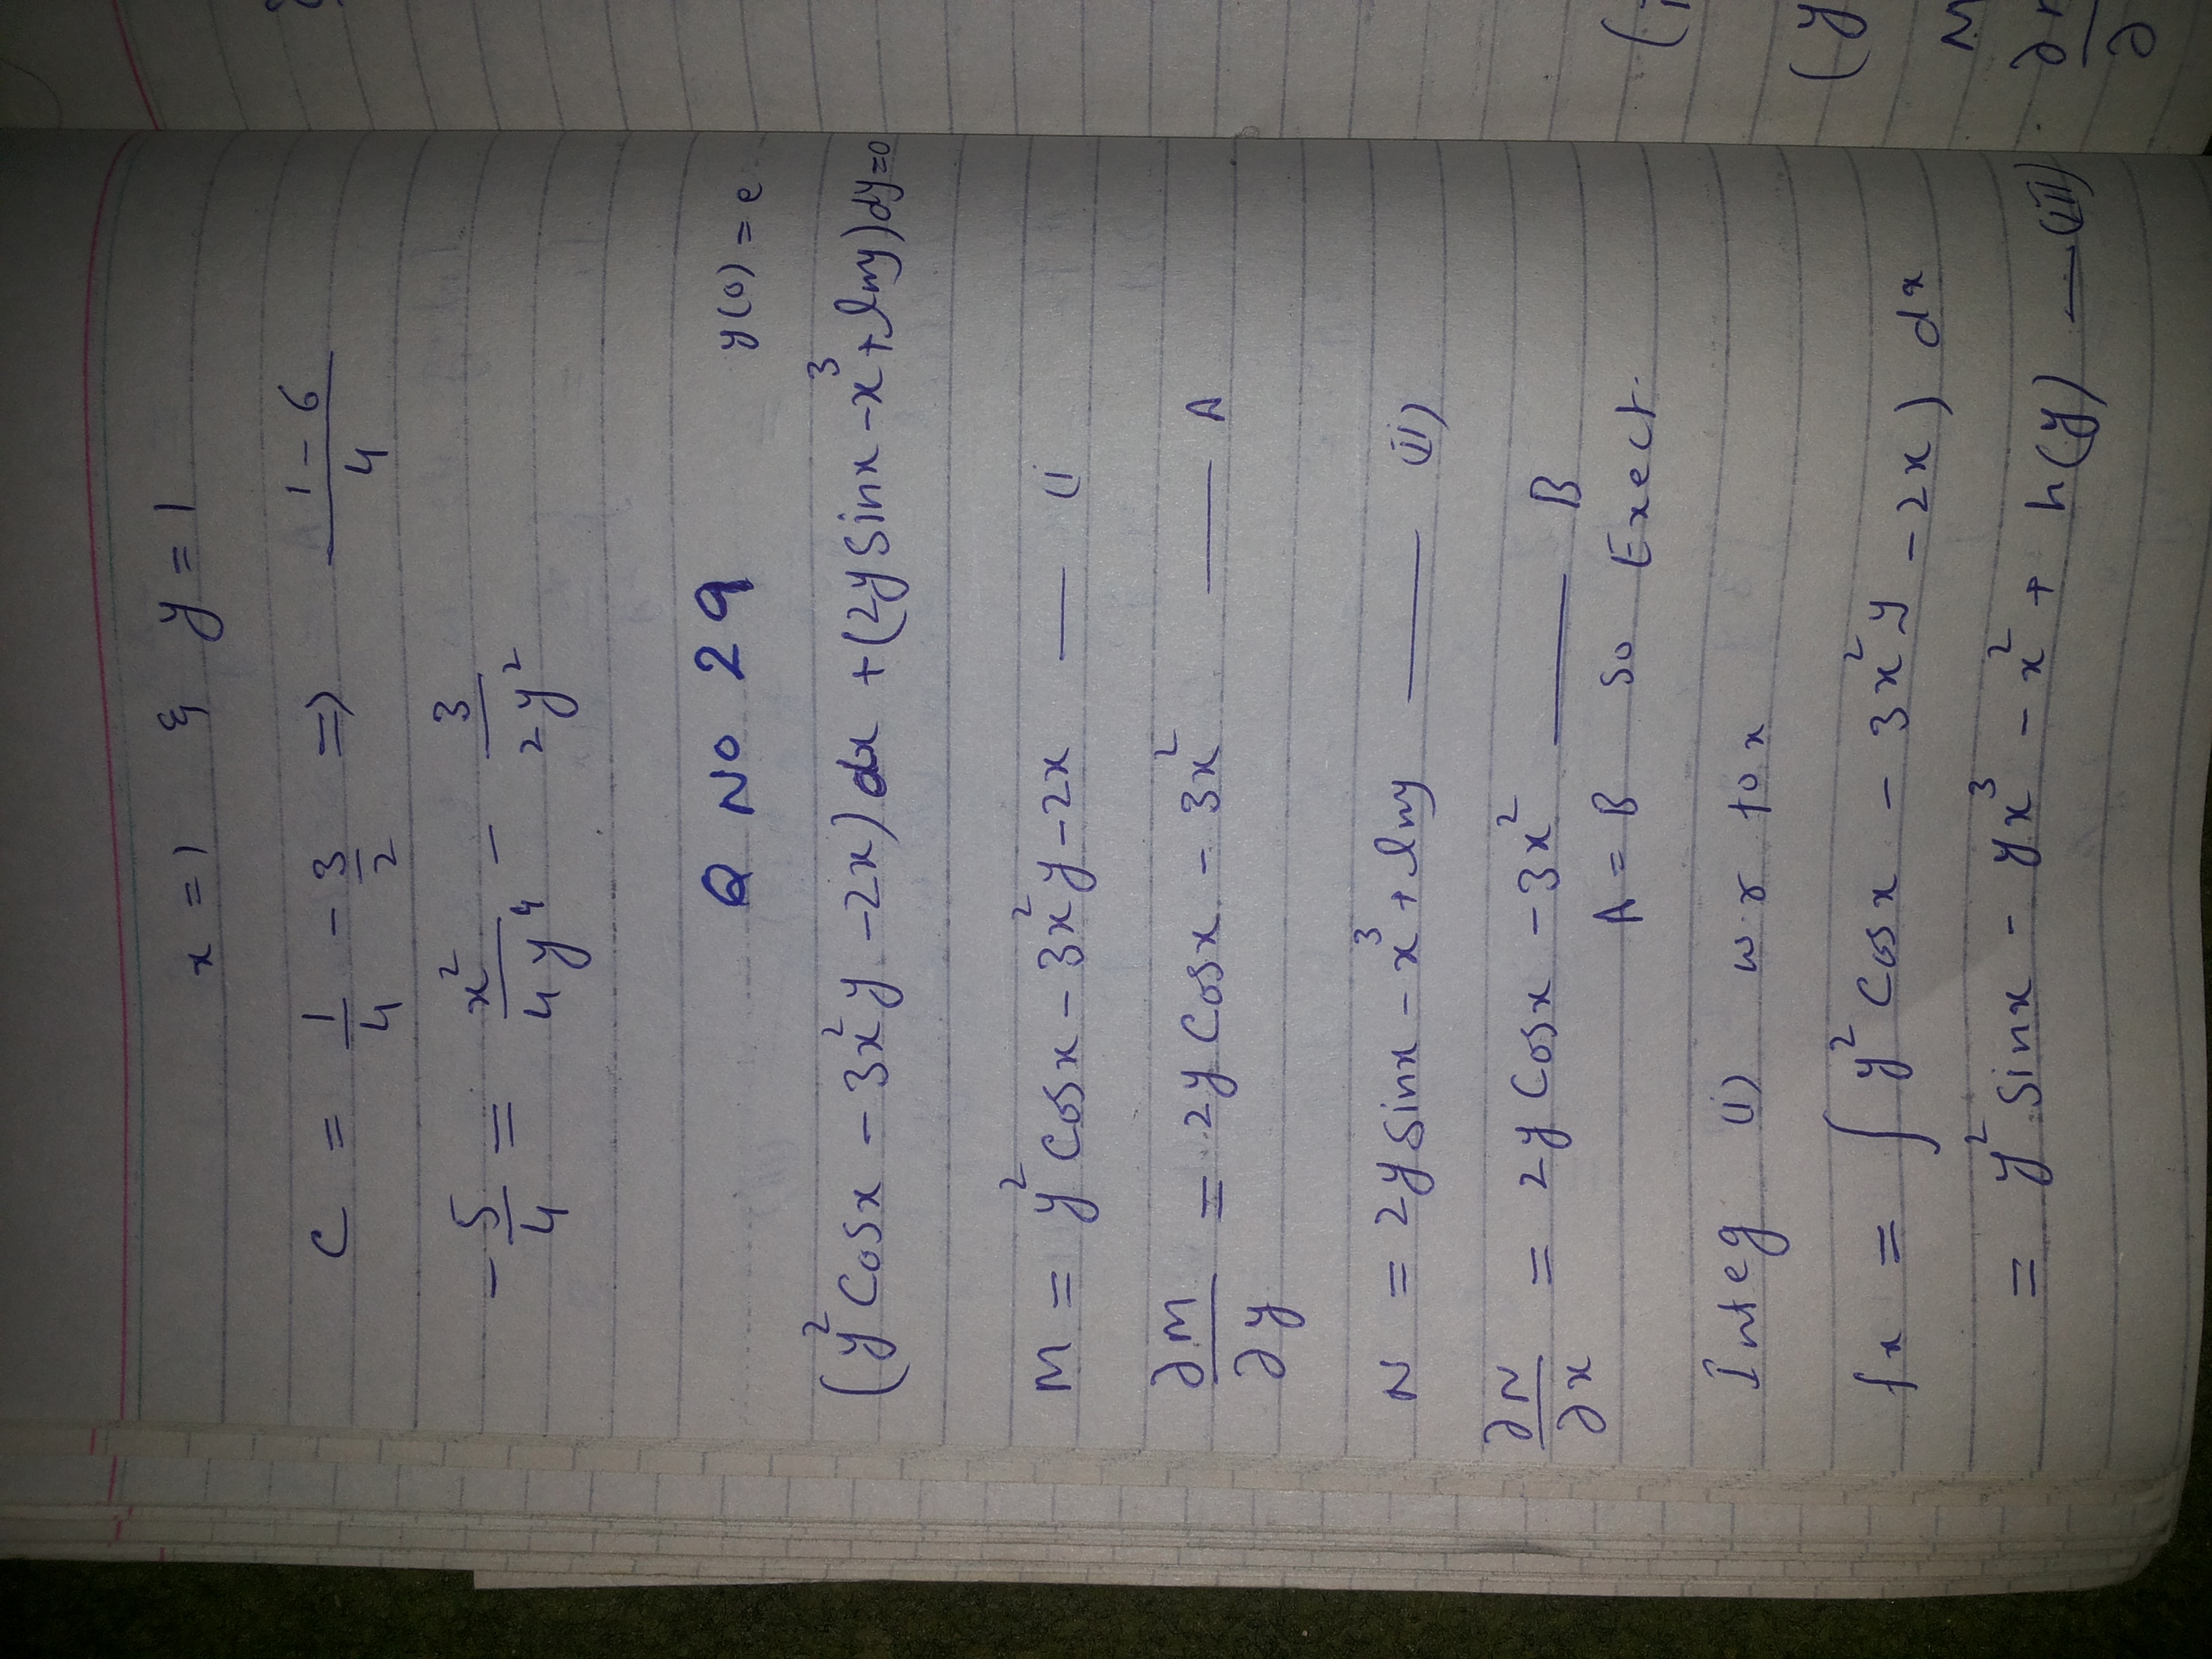 x = 1 & y = 1
C = 1/4 - 3/2 => (1 - 6)/4
- 5/4 = x²/4y⁴ - 3/2y²
Q No 29 y(0) = e
(y² Cosx - 3x²y - 2x) dx + (2y Sinx - x³ + lny) dy = 0
M = y² Cosx - 3x²y - 2x — (i
∂M/∂y = 2y Cosx - 3x² — A
N = 2y Sinx - x³ + lny — (ii)
∂N/∂x = 2y Cosx - 3x² — B
A = B So Exect.
Integ (i) w.r to x
fx = ∫ y² Cosx - 3x²y - 2x) dx
= y² Sinx - yx³ - x² + h(y) — (iii)